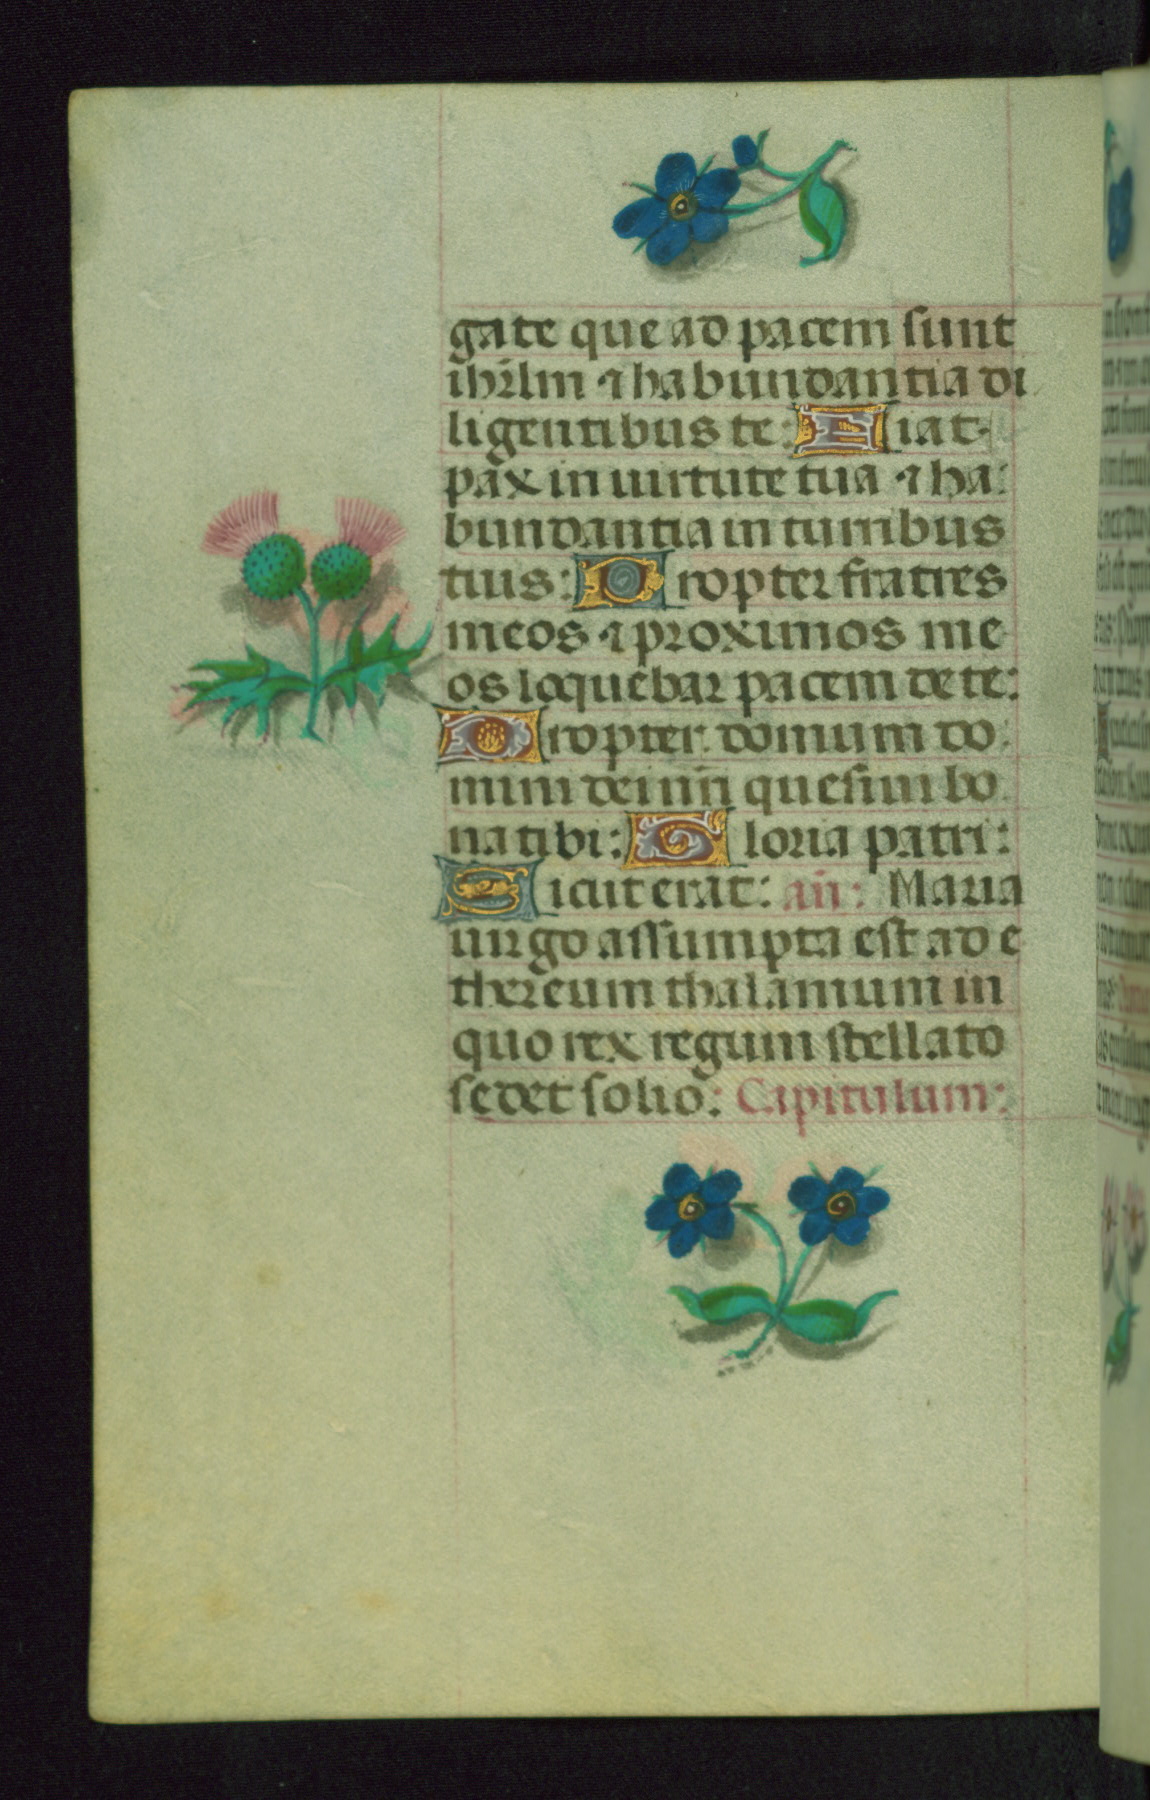 gate que ad pacem sunt
ihrlm ⁊ habundantia di
ligentibus te: Fiat
pax in uirtute tua ⁊ ha:
bundantia in turribus
tuis: Propter fratres
meos ⁊ proximos me
os loquebar pacem de te:
Propter domum do:
mini dei nr̄i quesiui bo
na tibi: Gloria patri:
Sicut erat: an̄: Maria
uirgo assumpta est ad e
thereum thalamum in
quo rex regum stellato
sedet solio: Capitulum: